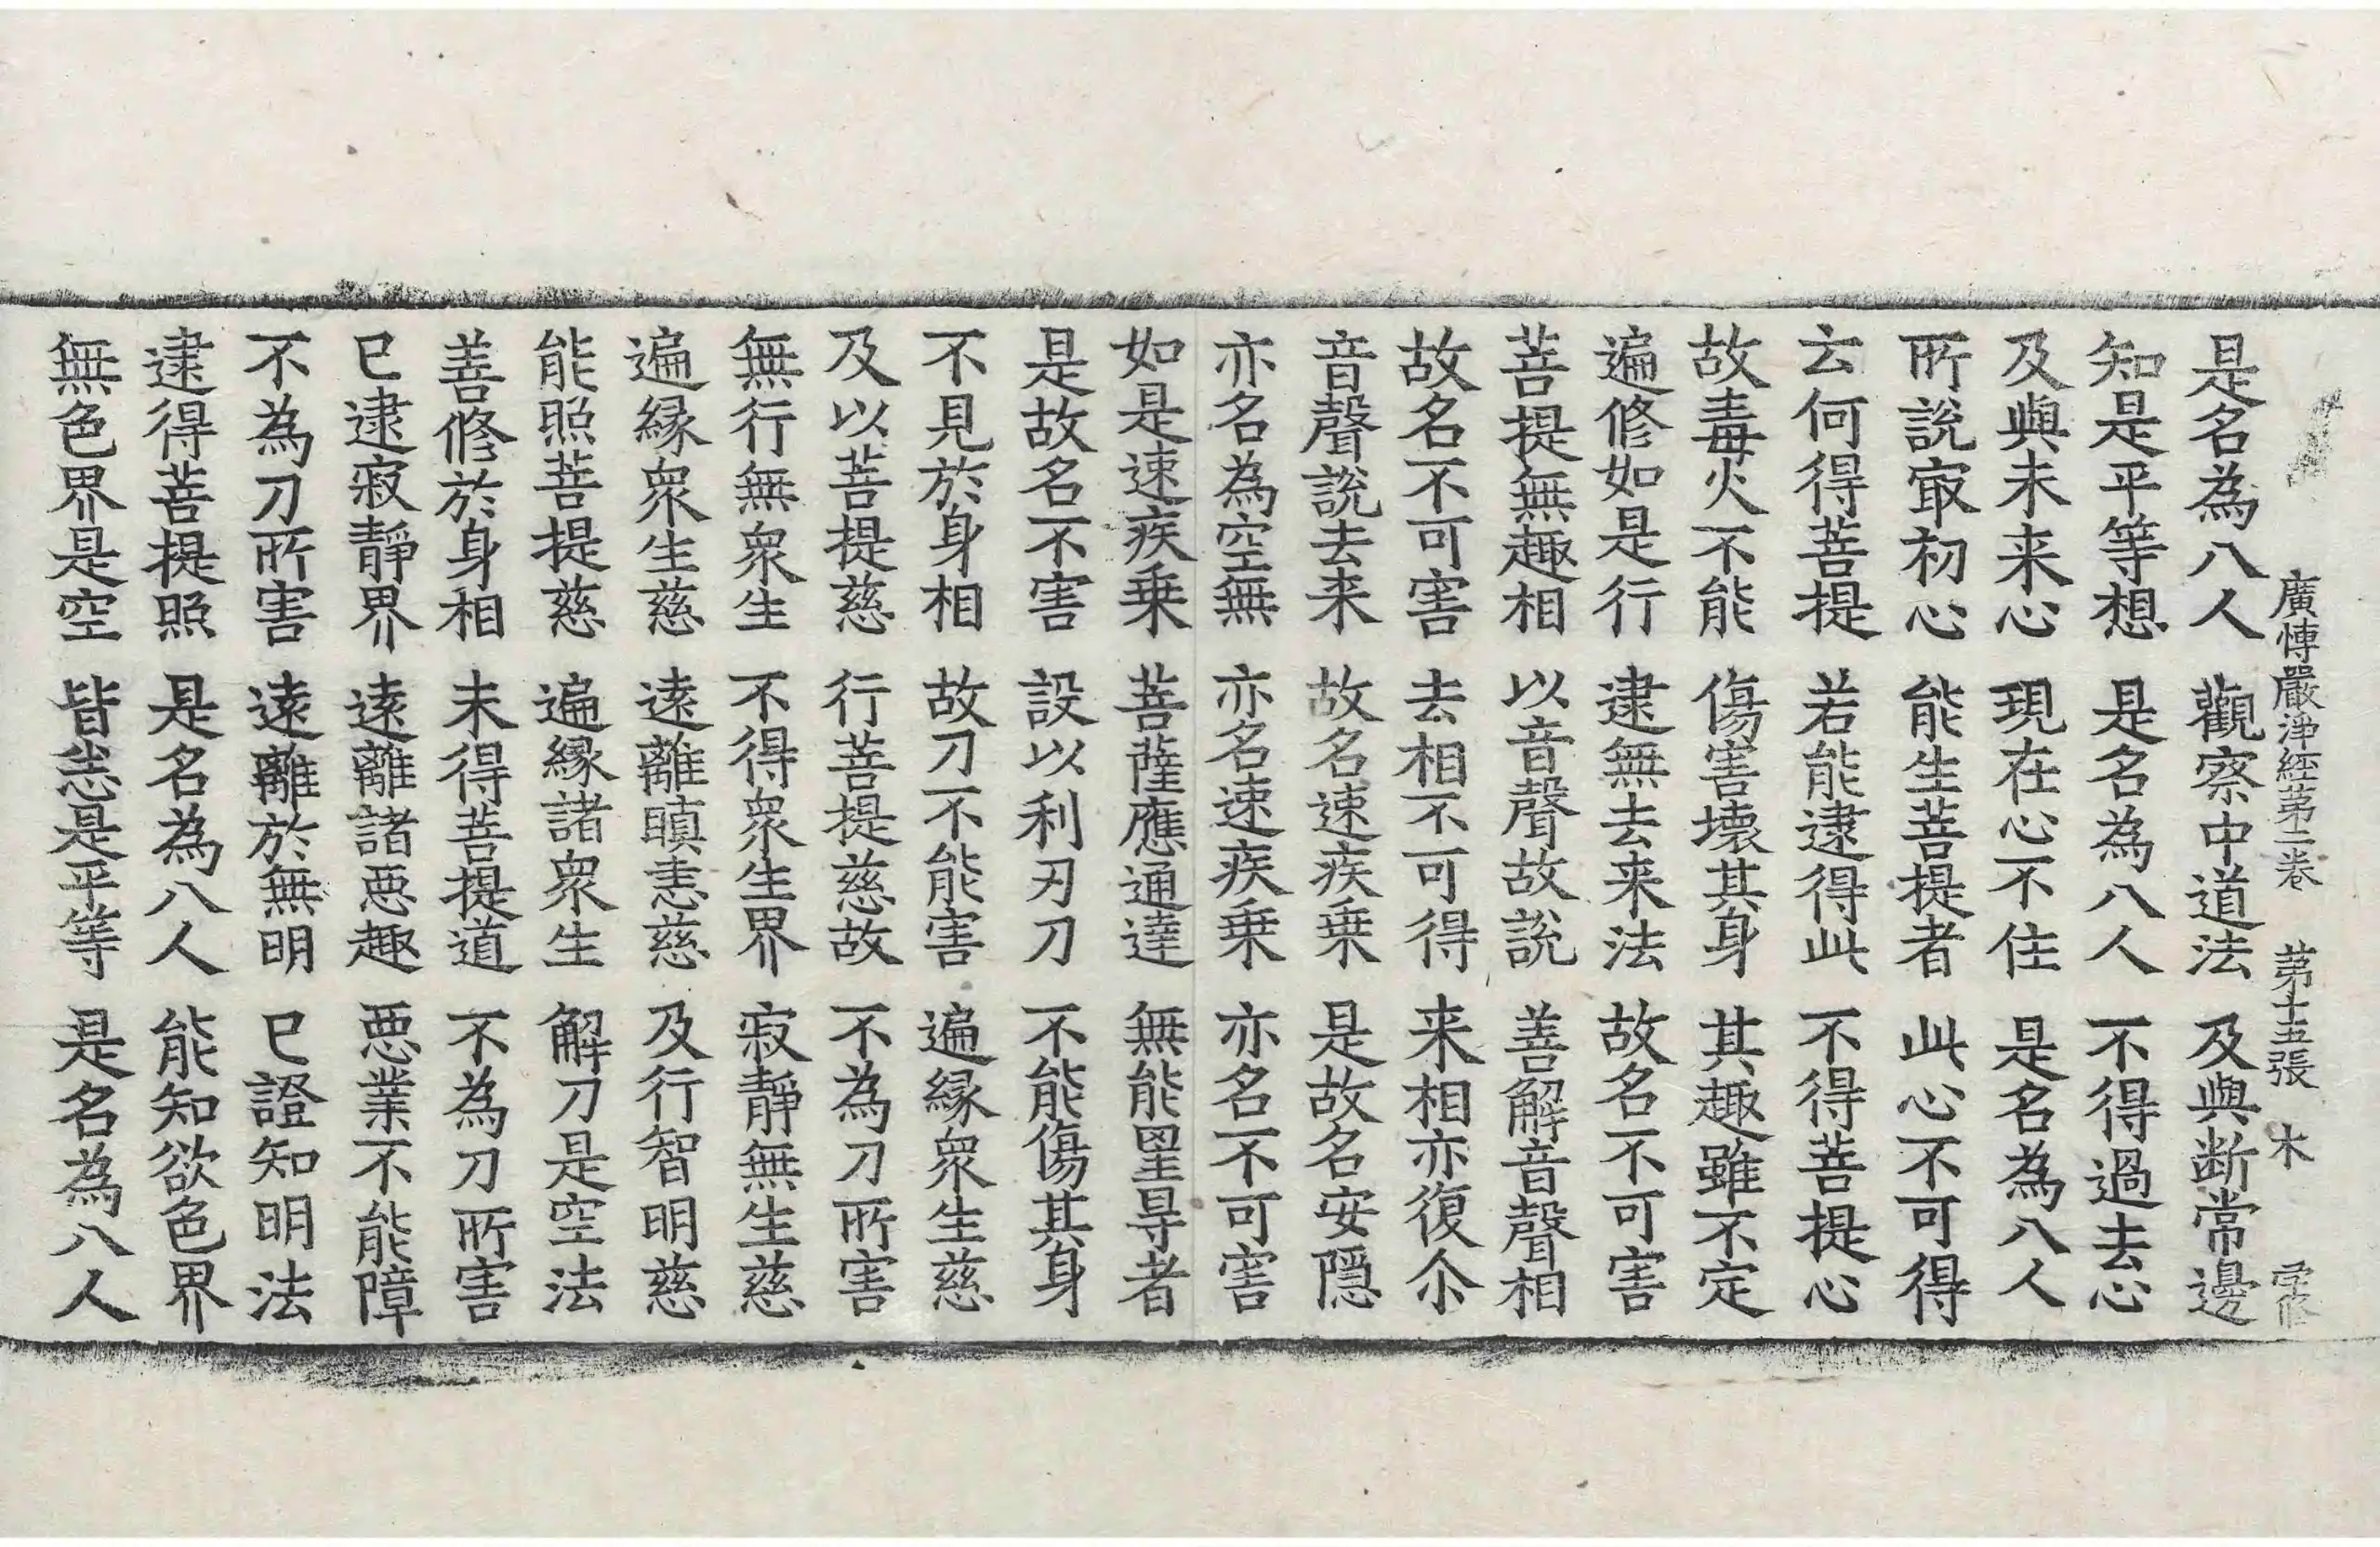 廣博嚴淨經第二卷 第十五張 木
是名為八人 觀察中道法 及與断常邊
知是平等想 是名為八人 不得過去心
及與未来心 現在心不住 是名為八人
所說㝡初心 能生菩提者 此心不可得
云何得菩提 若能逮得此 不得菩提心
故毒火不能 傷害壞其身 其趣雖不定
遍修如是行 逮無去来法 故名不可害
菩提無趣相 以音聲故說 善解音聲相
故名不可害 去相不可得 来相亦復尒
音聲說去来 故名速疾乗 是故名安隱
亦名為空無 亦名速疾乗 亦名不可害
如是速疾乗 菩薩應通達 無能罣㝵者
是故名不害 設以利刃刀 不能傷其身
不見於身相 故刀不能害 遍緣衆生慈
及以菩提慈 行菩提慈故 不為刀所害
無行無衆生 不得衆生界 寂靜無生慈
遍緣衆生慈 遠離瞋恚慈 及行智明慈
能照菩提慈 遍緣諸衆生 解刀是空法
善修於身相 未得菩提道 不為刀所害
已逮寂靜界 遠離諸惡趣 惡業不能障
不為刀所害 遠離於無明 已證知明法
逮得菩提照 是名為八人 能知欲色界
無色界是空 皆悉是平等 是名為八人